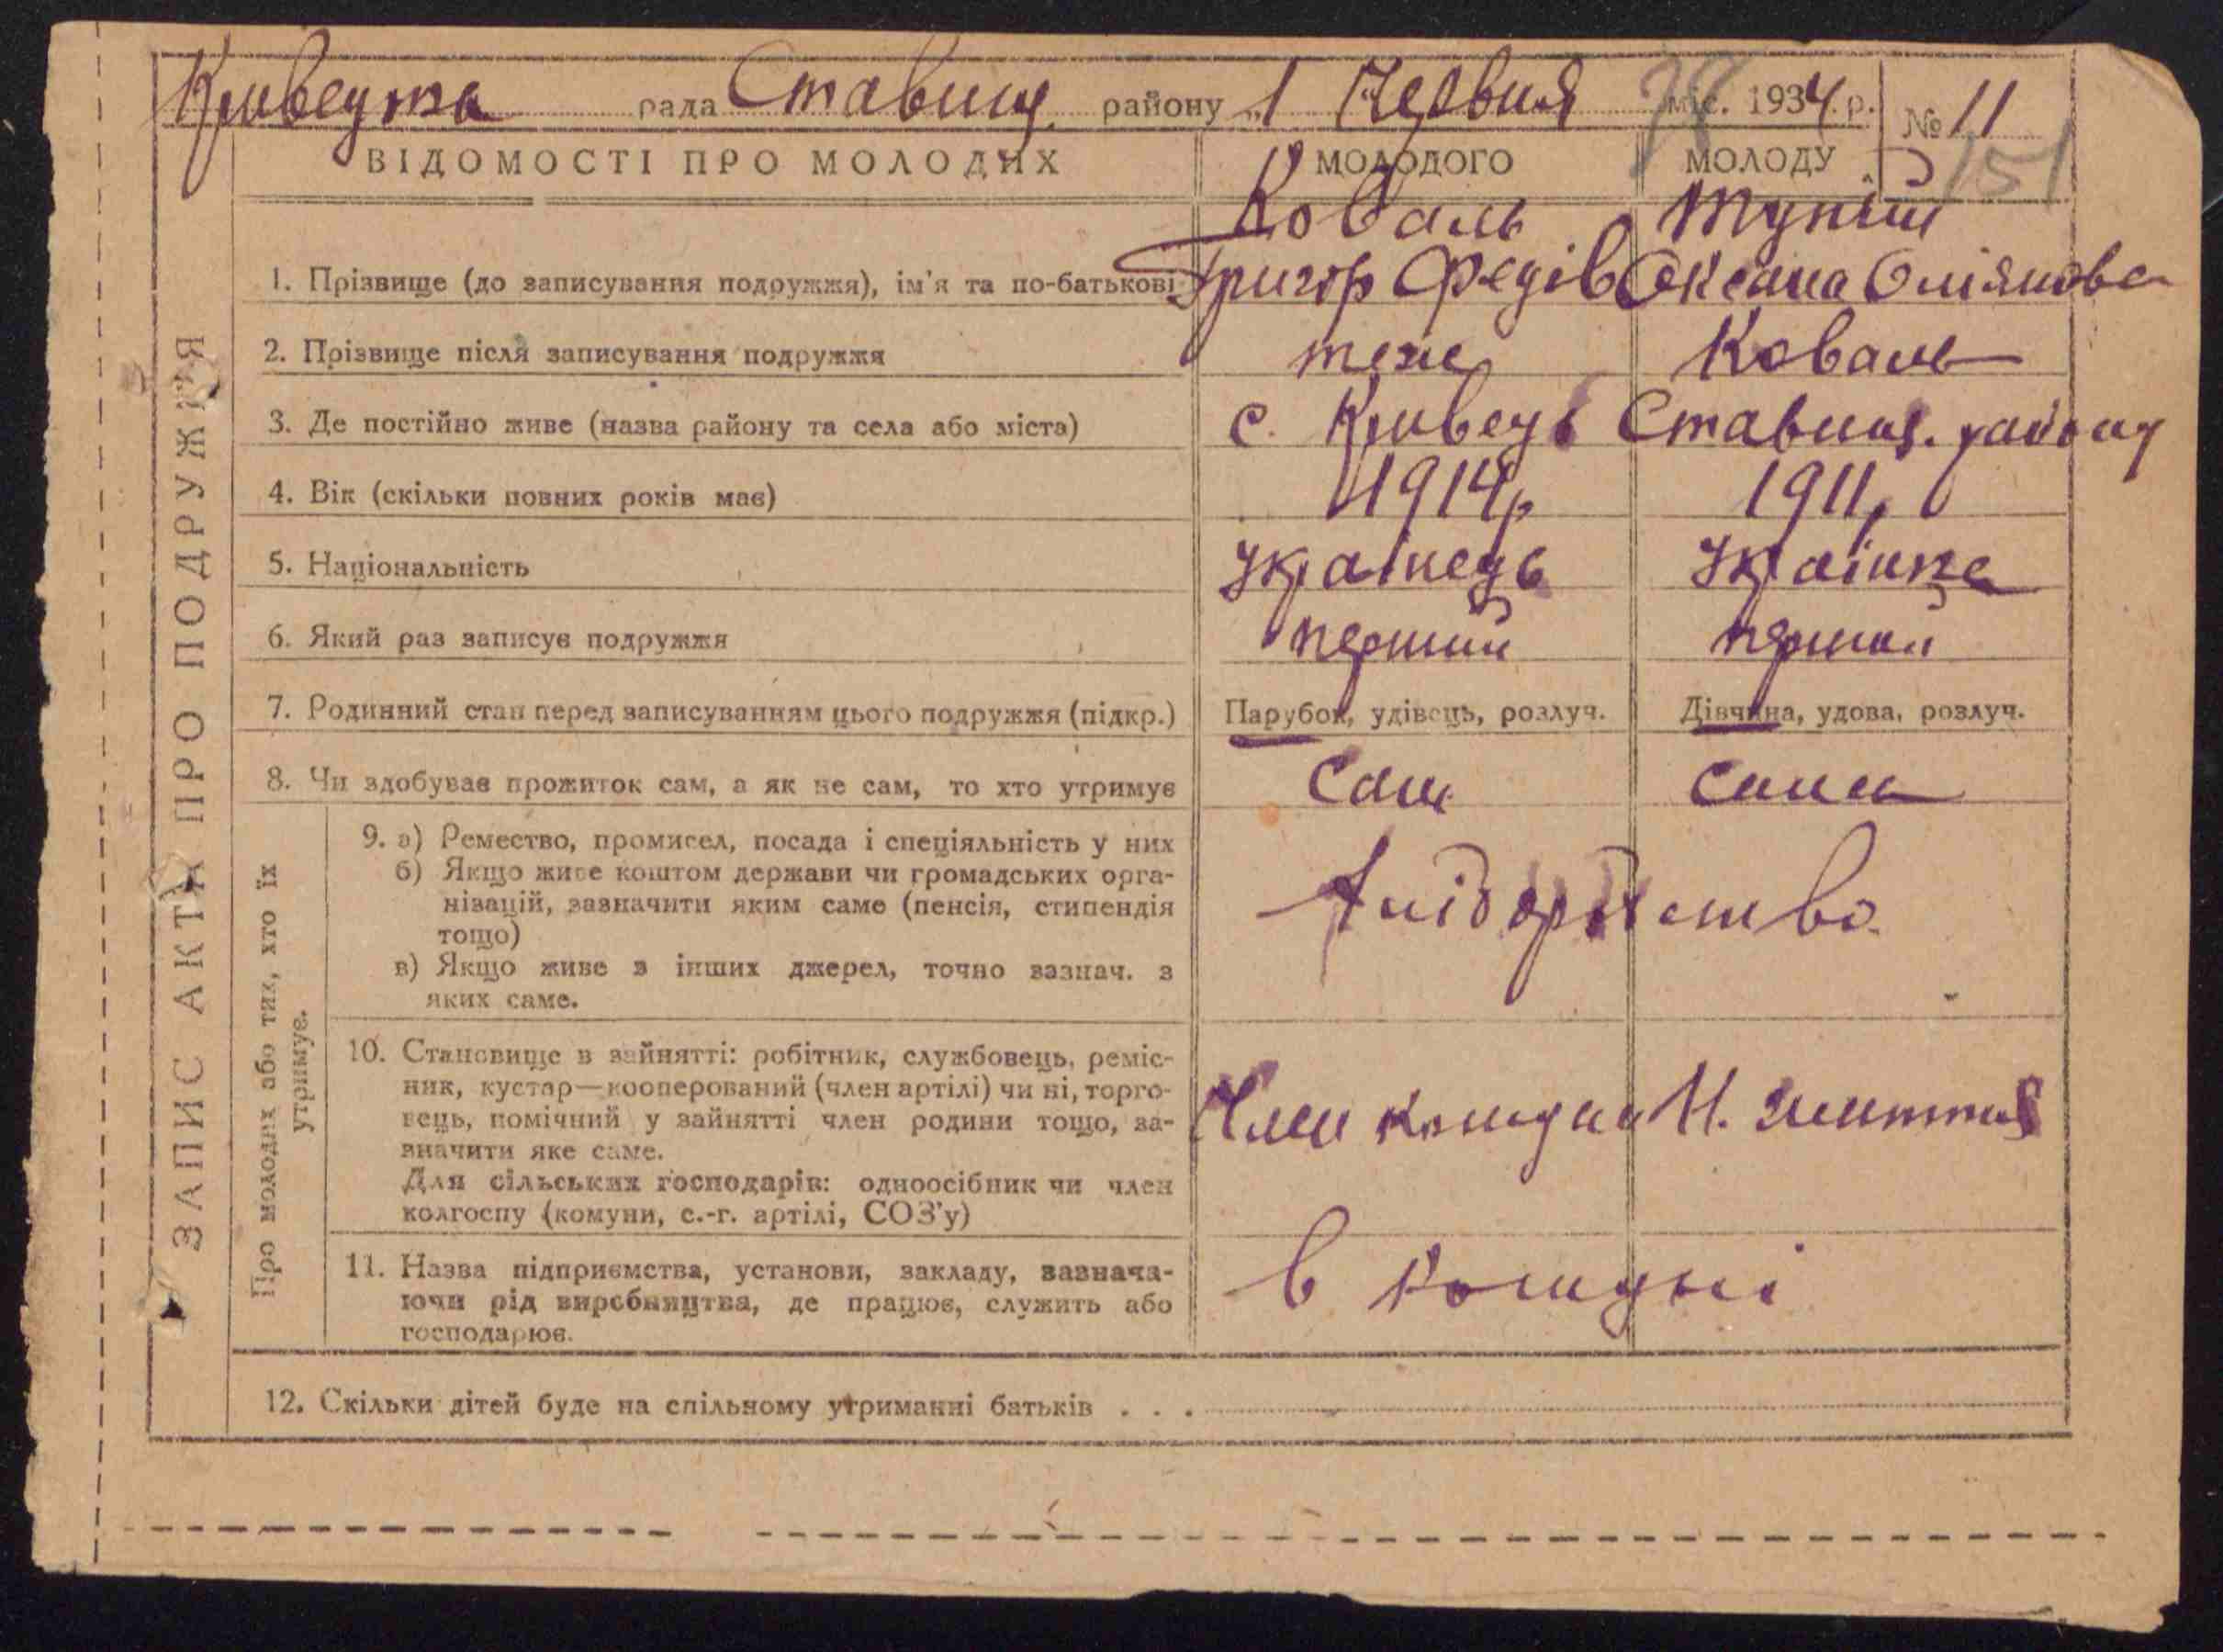 Кривецька рада Ставищ. району „1 Червня міс. 1934 р. № 11
151
ВІДОМОСТІ ПРО МОЛОДИХ МОЛОДОГО МОЛОДУ
Коваль
1. Прізвище (до записування подружжя), ім'я та по-батькові Григор Федів Оксана
2. Прізвище після записування подружжя теж Коваль
3. Де постійно живе (назва району та села або міста) с. Кривець Ставищ. району
4. Вік (скільки повних років має) 1914р 1911р
5. Національність Українець Українка
6. Який раз записує подружжя перший першой
7. Родинний стан перед записуванням цього подружжя (підкр.) Парубок, удівець, розлуч. Дівчина, удова, розлуч.
8. Чи здобуває прожиток сам, а як не сам, то хто утримує Сам сама
9. а) Ремество, промисел, посада і спеціяльність у них
б) Якщо живе коштом держави чи громадських орга-
нізацій, зазначити яким саме (пенсія, стипендія
тощо)
в) Якщо живе з інших джерел, точно зазнач. з
яких саме.
Хліборобство
10. Становище в зайнятті: робітник, службовець, реміс-
ник, кустар—кооперований (член артілі) чи ні, торго-
вець, помічний у зайнятті член родини тощо, за-
значити яке саме.
Для сільських господарів: одноосібник чи член
колгоспу (комуни, с.-г. артілі, СОЗ'у)
Член комуни Н. життя
11. Назва підприємства, установи, закладу, зазнача-
ючи рід виробництва, де працює, служить або
господарює.
в комуні
12. Скільки дітей буде на спільному утриманні батьків . . .
ЗАПИС АКТА ПРО ПОДРУЖЖЯ
Про молодих або тих, хто їх
утримує.